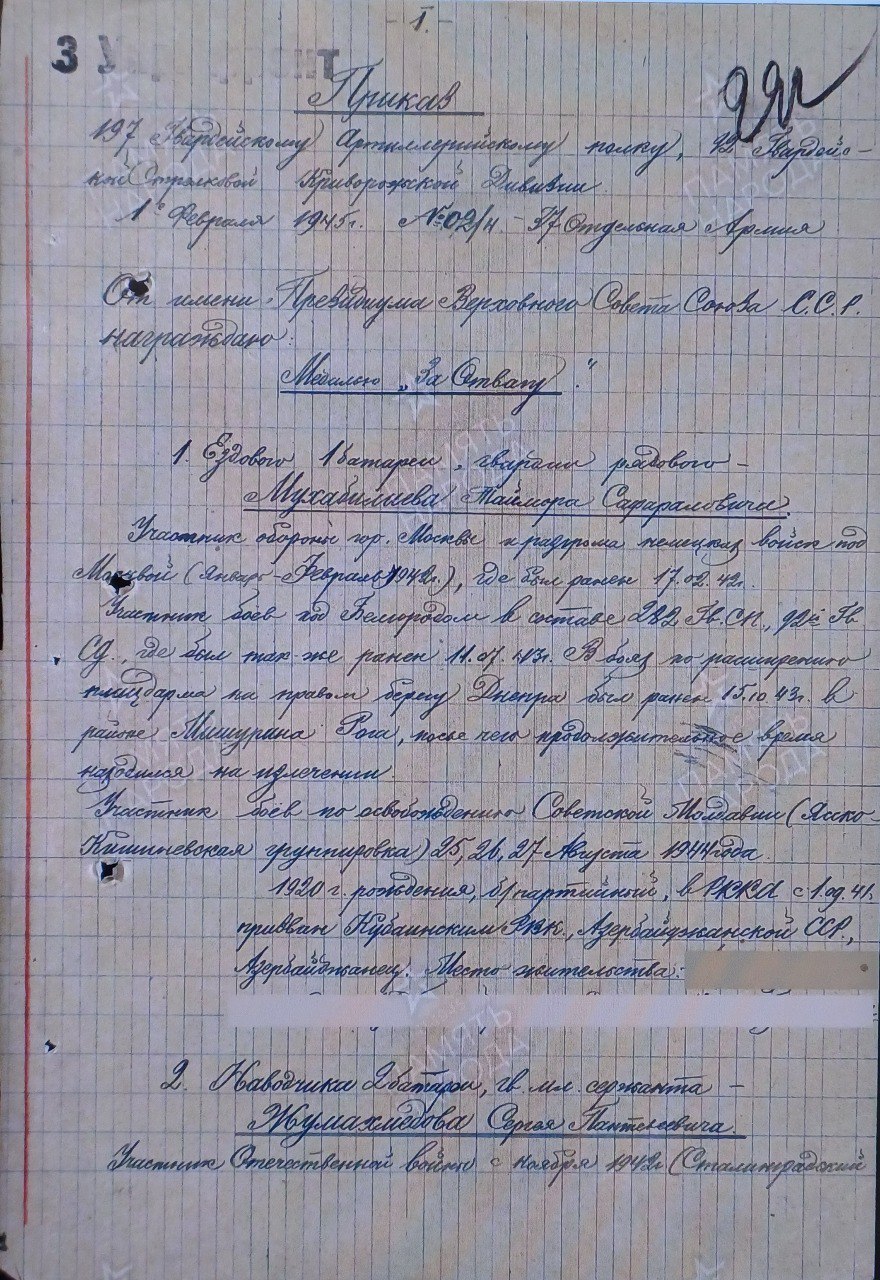 - 1. -
3
Приказ
197 Гвардейскому Артиллерийскому полку, 92 Гвардейс-
кой Стрелковой Криворожской Дивизии.
1° Февраля 1945г. №02/н - 37 Отдельная Армия
От имени Президиума Верховного Совета Союза С.С.Р.
награждаю:
Медалью „За Отвагу".
1. Ездового 1 батареи, гвардии рядового -
Мухабилиева Таймора Сафараловича.
Участник обороны гор. Москвы и разгрома немецких войск под
Москвой (Январь-Февраль 1942г.), где был ранен 17.02.42г.
Участник боев под Белгородом в составе 282 Гв.СП., 92й Гв
СД., где был так-же ранен 11.07.43г. В боях по расширению
плацдарма на правом берегу Днепра был ранен 15.10.43г. в
районе Мишурина Рога, после чего продолжительное время
находился на излечении.
Участник боёв по освобождению Советской Молдавии (Ясско-
Кишиневская группировка) 25, 26, 27 Августа 1944года.
1920 г. рождения, б/партийный, в РККА с 1.09.41г.
призван Кубинским РВК., Азербайджанской ССР.,
Азербайджанец. Место жительства:
2. Наводчика 2 батареи, гв. мл. сержанта -
Жумахмедова Сергея
Участник Отечественной войны с ноября 1942г (Сталинградский
ПАМЯТЬ
НАРОДА